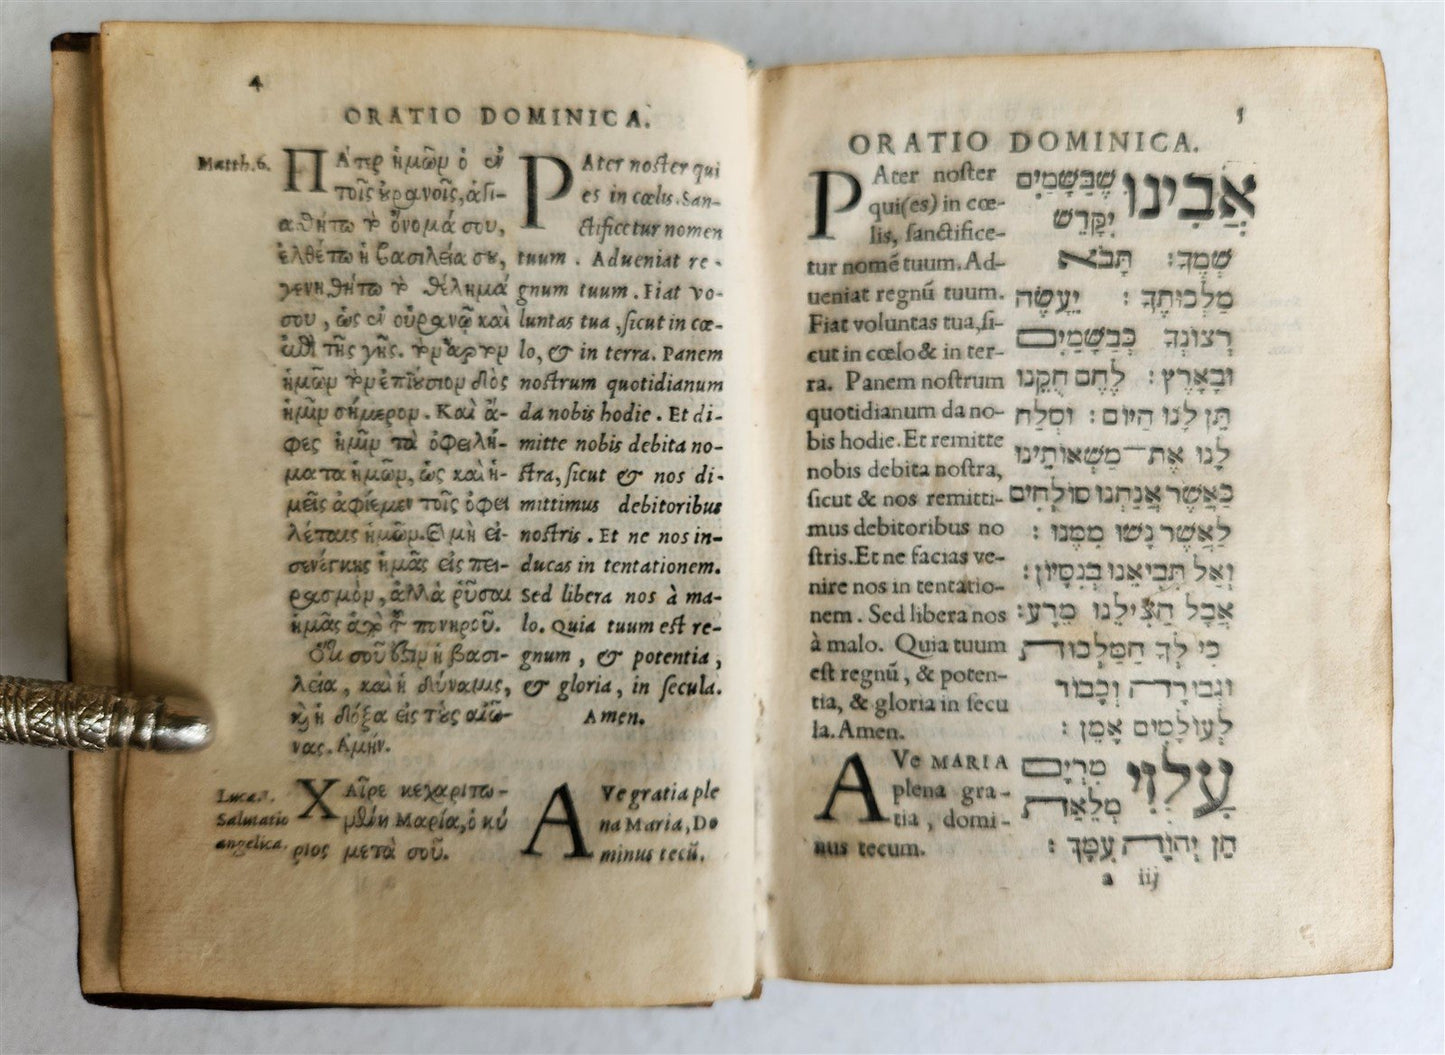 4
ORATIO DOMINICA.
Matth.6.
ΠΑτερ ἡμῶν ὁ ἐν
τοῖς οὐρανοῖς, ἁγι-
αθήτω τὸ ὄνομά σου,
ἐλθέτω ἡ βασιλεία σου,
γενηθήτω τὸ θέλημά
σου, ὡς ἐν οὐρανῷ καὶ
ἐπὶ τῆς γῆς. τὸν ἄρτον
ἡμῶν τὸν ἐπιούσιον δὸς
ἡμῖν σήμερον. Καὶ ἄ-
φες ἡμῖν τὰ ὀφειλή-
ματα ἡμῶν, ὡς καὶ ἡ-
μεῖς ἀφίεμεν τοῖς ὀφει
λέταις ἡμῶν. Καὶ μὴ εἰ-
σενέγκῃς ἡμᾶς εἰς πει-
ρασμὸν, ἀλλὰ ῥῦσαι
ἡμᾶς ἀπὸ τοῦ πονηροῦ.
Ὅτι σοῦ ἐστιν ἡ βασι-
λεία, καὶ ἡ δύναμις,
καὶ ἡ δόξα εἰς τοὺς αἰῶ-
νας. Αμήν.
PAter noster qui
es in cœlis. San-
ctificetur nomen
tuum. Adueniat re-
gnum tuum. Fiat vo-
luntas tua, sicut in cœ-
lo, & in terra. Panem
nostrum quotidianum
da nobis hodie. Et di-
mitte nobis debita no-
stra, sicut & nos di-
mittimus debitoribus
nostris. Et ne nos in-
ducas in tentationem.
Sed libera nos à ma-
lo. Quia tuum est re-
gnum, & potentia,
& gloria, in secula.
Amen.
Luca.1.
Salutatio
angelica.
ΧΑῖρε κεχαριτω-
μένη Μαρία, ὁ κύ
ριος μετὰ σοῦ.
AVe gratia ple
na Maria, Do
minus tecũ.
5
ORATIO DOMINICA.
PAter noster
qui(es) in cœ-
lis, sanctifice-
tur nomẽ tuum. Ad-
ueniat regnũ tuum.
Fiat voluntas tua, si-
cut in cœlo & in ter-
ra. Panem nostrum
quotidianum da no-
bis hodie. Et remitte
nobis debita nostra,
sicut & nos remitti-
mus debitoribus no
stris. Et ne facias ve-
nire nos in tentatio-
nem. Sed libera nos
à malo. Quia tuum
est regnũ, & poten-
tia, & gloria in secu
la. Amen.
אֲבִינוּ שֶׁבַּשָּׁמַיִם
יִקָּדֵשׁ
שְׁמֶךָ: תָּבֹא
מַלְכוּתֶךָ: יֵעָשֶׂה
רְצוֹנְךָ כְּבַשָּׁמַיִם
וּבָאָרֶץ: לֶחֶם חֻקֵּנוּ
תֵּן לָנוּ הַיּוֹם: וּסְלַח
לָנוּ אֶת־מַשְׁאוֹתֵינוּ
כַּאֲשֶׁר אֲנַחְנוּ סוֹלְחִים
לַאֲשֶׁר נָשׁוּ מִמֶּנּוּ:
וְאַל תְּבִיאֵנוּ בְּנִסָּיוֹן:
אֲבָל הַצִּילֵנוּ מֵרָע:
כִּי לְךָ הַמַּלְכוּת
וּגְבוּרָה וְכָבוֹד
לְעוֹלָמִים אָמֵן:
AVe MARIA
plena gra-
tia, domi-
nus tecum.
עָלְזִי מִרְיָם
מְלֵאַת
חֵן יְהוָה עִמָּךְ:
a iij